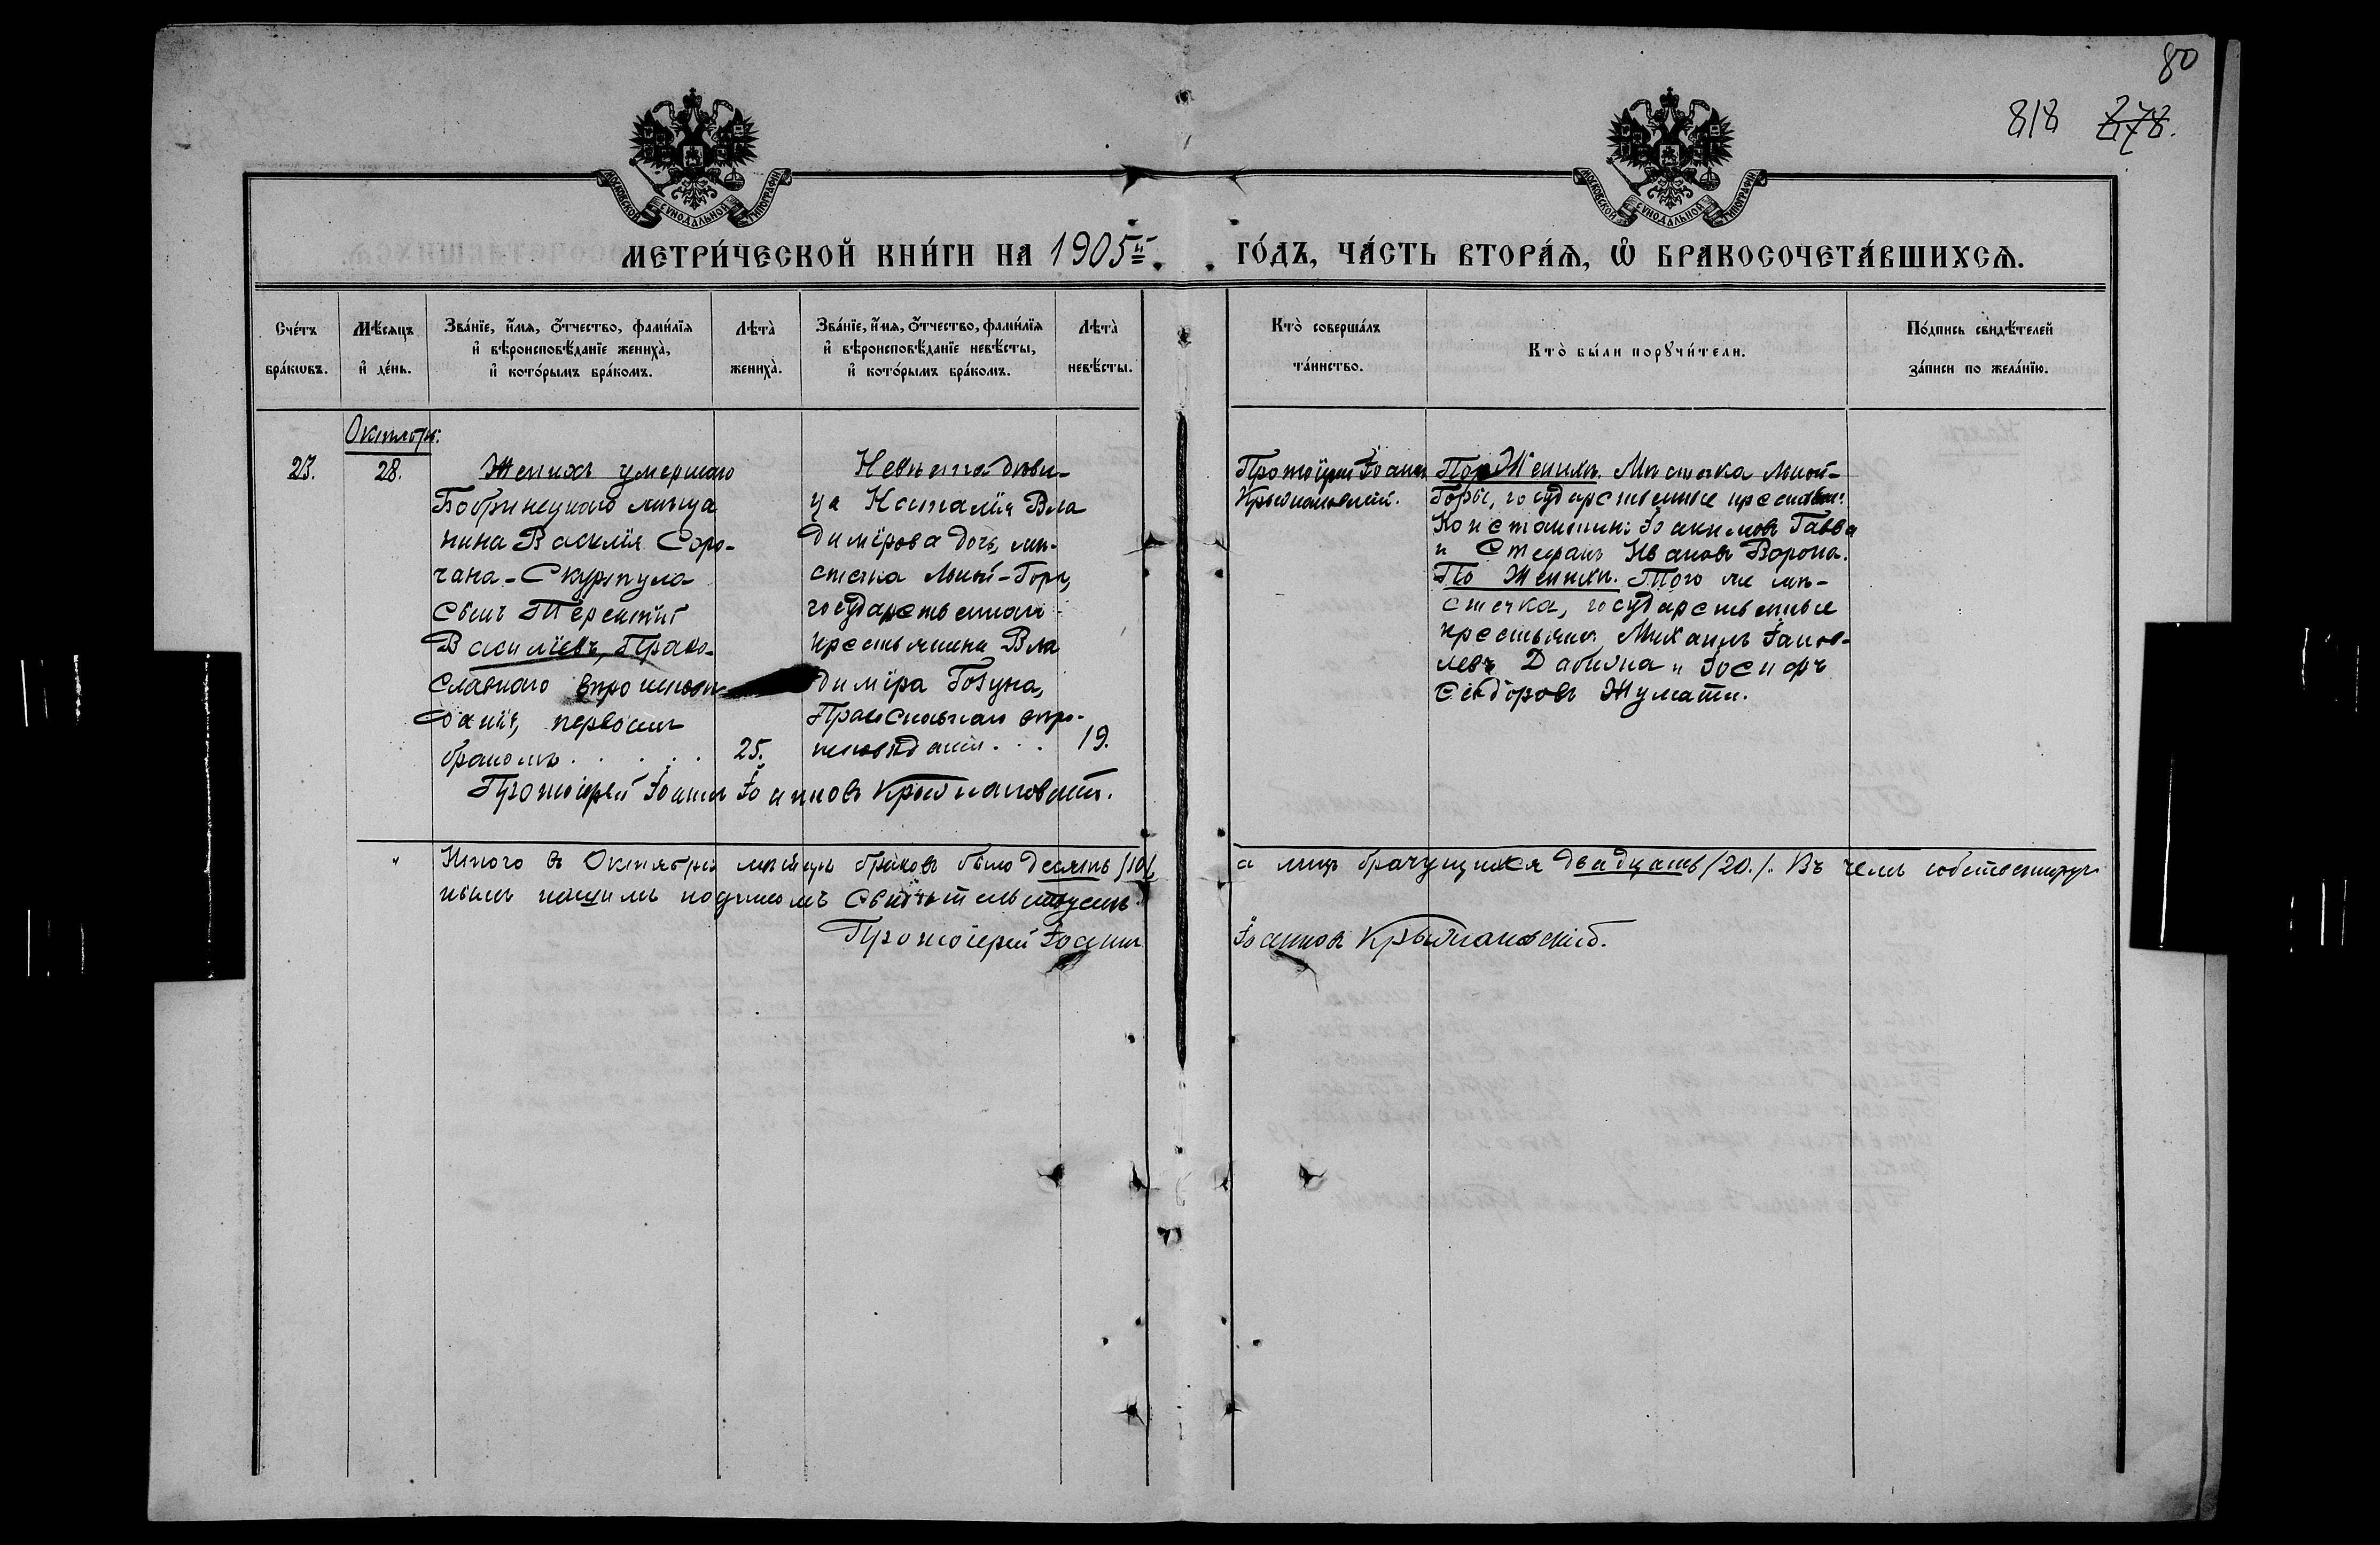 80
818 278.
МОСКОВСКОЙ СУНОДАЛЬНОЙ ТИПОГРАФІИ
МОСКОВСКОЙ СУНОДАЛЬНОЙ ТИПОГРАФІИ
МЕТРИ́ЧЕСКОЙ КНИ́ГИ НА 1905й.
ГО́ДЪ, ЧА́СТЬ ВТОРА́Ѧ, Ѡ҆ БРАКОСОЧЕТА́ВШИХСѦ.
Сче́тъ бра́кѡвъ.
Мѣ́сяцъ и҆ де́нь.
Зва́нїе, и҆́мя, ѻ҆́тчество, фамі́лїя
и҆ вѣроисповѣ́данїе жениха̀,
и҆ кото́рымъ бра́комъ.
Лѣта̀ жениха̀.
Зва́нїе, и҆́мя, ѻ҆́тчество, фамі́лїя
и҆ вѣроисповѣ́данїе невѣ́сты,
и҆ кото́рымъ бра́комъ.
Лѣта̀ невѣ́сты.
Кто̀ соверша́лъ
та́инство.
Кто̀ бы́ли порꙋчи́тели.
По́дпись свидѣ́телей
за́писи по жела́нїю.
Октябрь.
23.
28.
Женихъ умершаго
Бобринецкаго мѣща
нина Василія Соро-
чана-Скурптула
сынъ Терентій
Василіевъ, Право-
славнаго вѣроисповѣ-
данія, первымъ
бракомъ . . . . . 25.
Невѣста дѣви-
ца Наталія Вла
димірова дочь, мѣ-
стечка Лысой-Горы,
государственнаго
крестьянина Вла
диміра Говуна,
Православнаго вѣро-
исповѣданія . . . 19.
Протоіерей Іоаннъ Іоанновъ Крыжановскій.
Протоіерей Іоаннъ
Крыжановскій.
По Женихѣ. Мѣстечка Лысой-
Горы, государственные крестьян:
Константинъ Іоакимовъ Гавва
и Стефанъ Ивановъ Ворона.
По Женихѣ. Того же мѣ-
стечка, государственные
крестьяне Михаилъ Іаков-
левъ Дабижа и Іосифъ
Сидоровъ Жумати.
" Итого въ Октябрѣ мѣсяцѣ браковъ было десять /10/,
а лицъ брачущихся двадцать /20./. Въ чемъ собственноруч-
нымъ нашимъ подписомъ свидѣтельствуемъ.
Протоіерей Іоаннъ
Іоанновъ Крыжановскій.